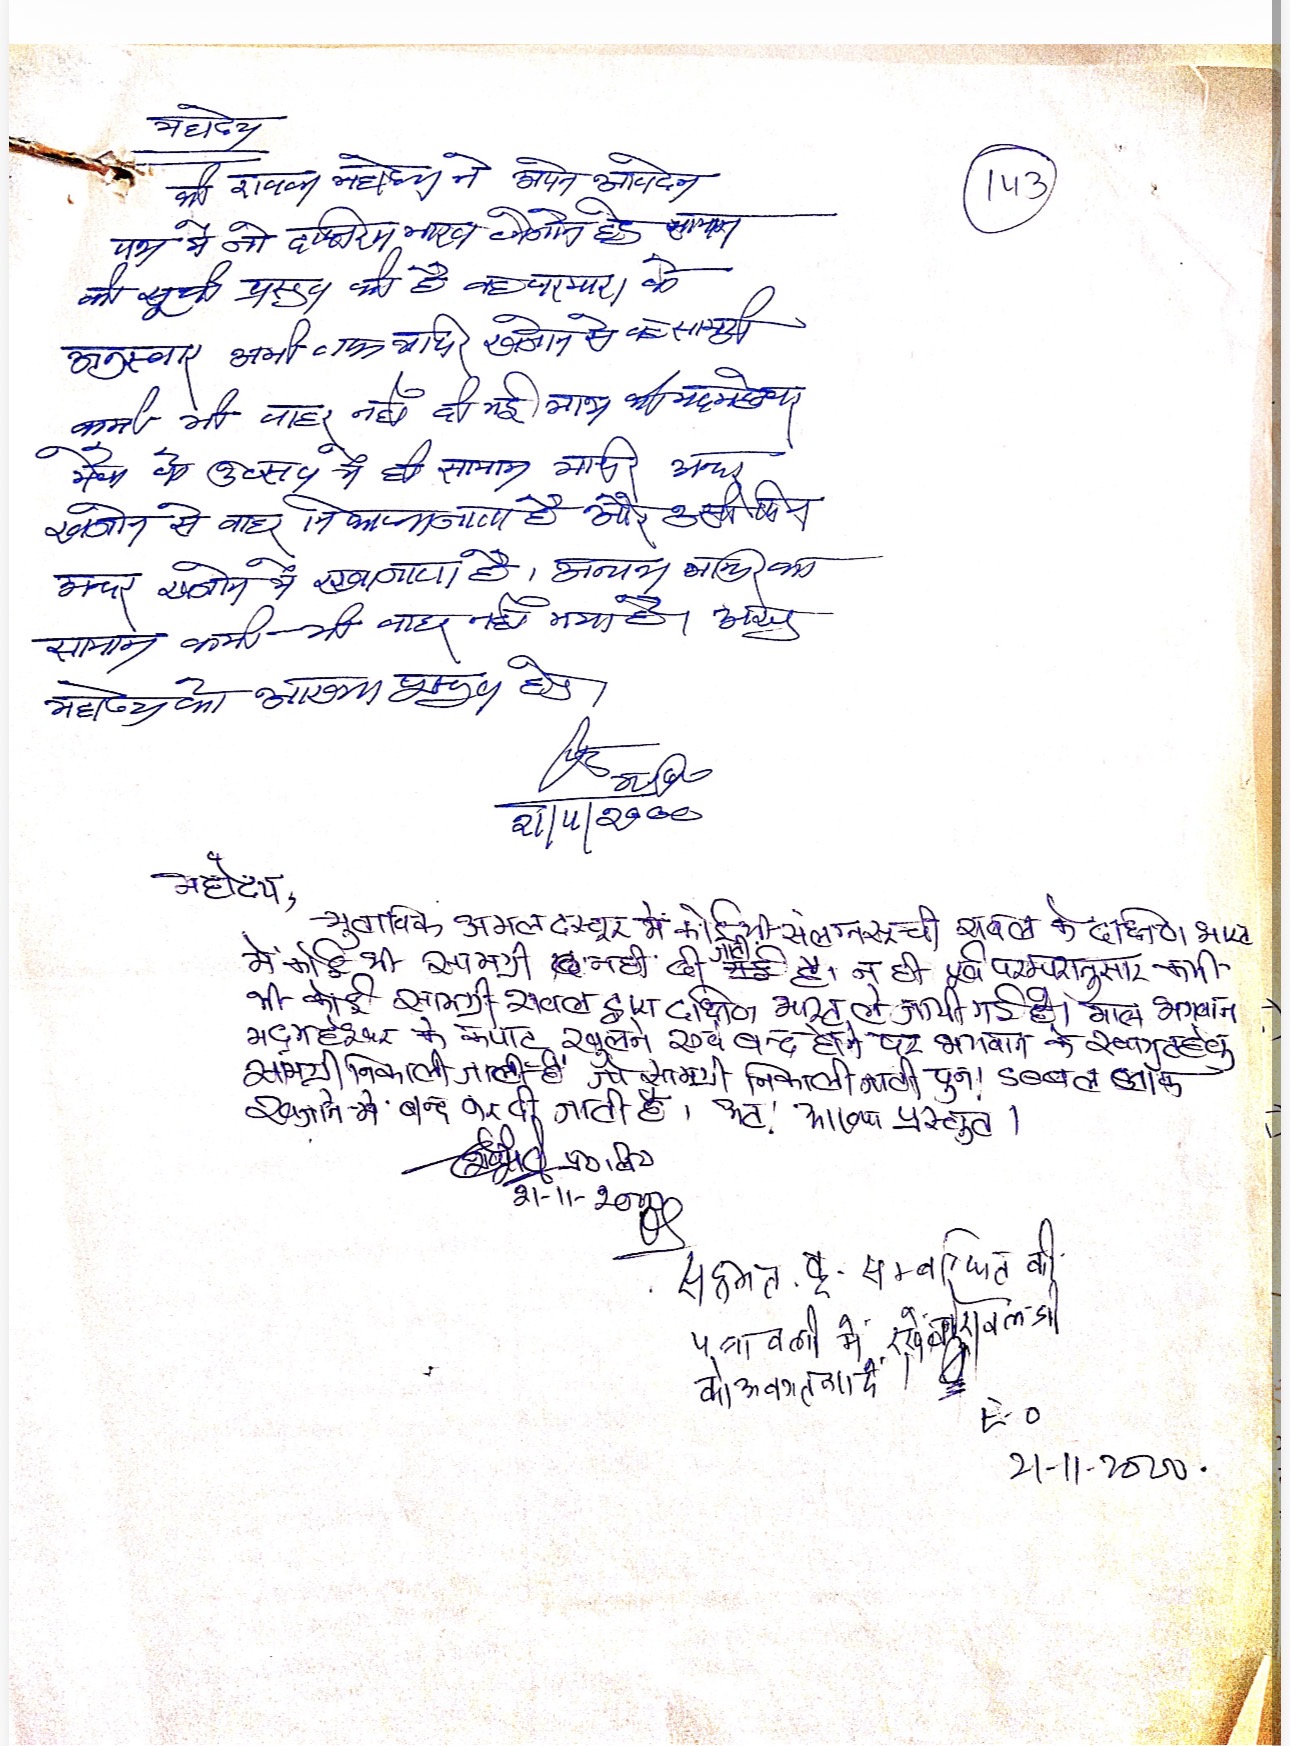 महोदय
143
श्री रावल महोदय ने अपने आवेदन
पत्र में जो दक्षिण भारत लेजाने हेतु सामान
की सूची प्रस्तुत की है वह परम्परा के
अनुस्वार अभी तक मन्दिर खजाने से वह सामग्री
कभी भी बाहर नहीं दी गई। मात्र श्री मदमहेश्वर
मेला के उत्सव में ही सामान मन्दिर अन्दर
खजाने से बाहर निकाला जाता है और उसी दिन
अन्दर खजाने में रखा जाता है। अन्यत्र मन्दिर का
सामान कभी भी बाहर नहीं गया है। अस्तु
महोदय को आख्या प्रस्तुत है।
21/11/2000
महोदय,
मुताबिक अमल दस्तूर में कोई भी संलग्न सूची रावल के दक्षिण भारत
में कोई भी सामग्री नहीं दी जाती है। न ही पूर्व परम्परानुसार कभी
भी कोई सामग्री रावल द्वारा दक्षिण भारत ले जायी गई है। मात्र भगवान
मदमहेश्वर के कपाट खुलने एवं बन्द होने पर भगवान के स्वागत हेतु
सामग्री निकाली जाती है जो सामग्री निकाली जाती पुनः डबल लॉक
खजाने में बन्द कर दी जाती है। अतः आख्या प्रस्तुत।
21-11-2000
सहमत. कृ. सम्बन्धित की
पत्रावली में रखें व रावल जी
को अवगत करा दें।
E.O
21-11-2000.